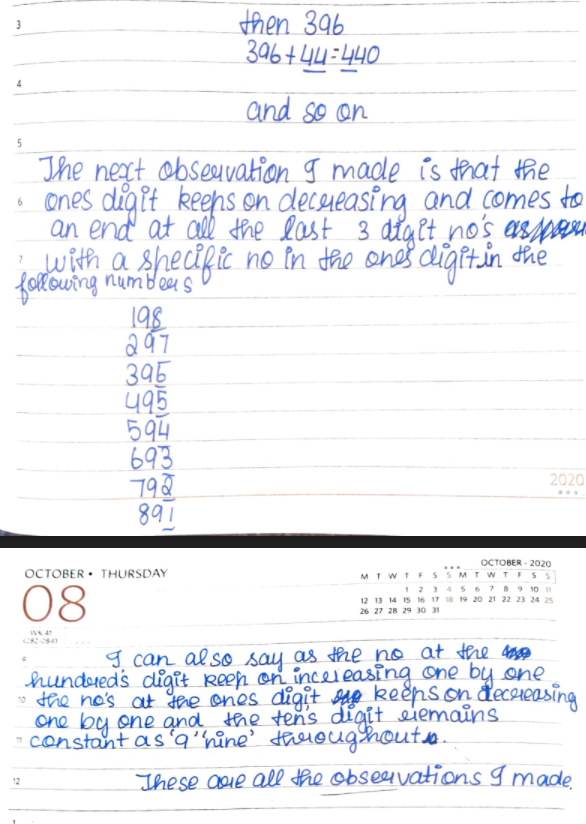 3
then 396
396+44=440
4
and so on
5
The next observation I made is that the
6 ones digit keeps on decreasing and comes to
an end at all the last 3 digit no's
7 with a specific no in the ones digit in the
following numbers
198
297
396
495
594
693
792
891
2020
OCTOBER • THURSDAY
08
WK 41
(282-084)
OCTOBER - 2020
M T W T F S S M T W T F S S
1 2 3 4 5 6 7 8 9 10 11
12 13 14 15 16 17 18 19 20 21 22 23 24 25
26 27 28 29 30 31
9 I can also say as the no at the
hundred's digit keep on increasing one by one
10 the no's at the ones digit keeps on decreasing
one by one and the ten's digit remains
11 constant as '9' 'nine' throughout.
12 These are all the observations I made.